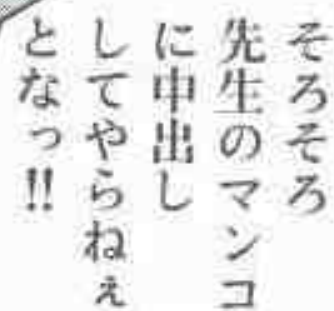 そろそろ
先生のマンコ
に中出し
してやらねぇ
となっ!!